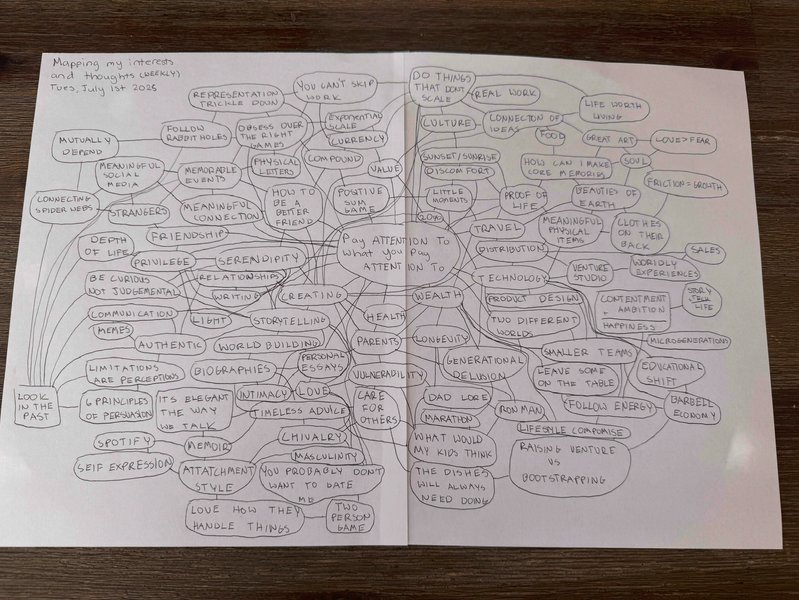 Mapping my interests
and thoughts (WEEKLY)
Tues, July 1st 2025
REPRESENTATION
TRICKLE DOWN
YOU CAN'T SKIP
WORK
DO THINGS
THAT DON'T
SCALE
REAL WORK
LIFE WORTH
LIVING
MUTUALLY
DEPEND
FOLLOW
RABBIT HOLES
OBSESS OVER
THE RIGHT
GAMES
EXPONENTIAL
SCALE
CURRENCY
CULTURE
CONNECTION OF
IDEAS
FOOD
GREAT ART
LOVE>FEAR
MEANINGFUL
SOCIAL
MEDIA
MEMORABLE
EVENTS
PHYSICAL
LETTERS
COMPOUND
VALUE
SUNSET/SUNRISE
DISCOMFORT
HOW CAN I MAKE
CORE MEMORIES
SOUL
FRICTION=GROWTH
CONNECTING
SPIDER WEBS
STRANGERS
MEANINGFUL
CONNECTION
HOW TO
BE A
BETTER
FRIEND
POSITIVE
SUM
GAME
LITTLE
MOMENTS
PROOF OF
LIFE
BEAUTIES OF
EARTH
DEPTH
OF LIFE
FRIENDSHIP
PRIVILEGE
SERENDIPITY
PAY ATTENTION TO
WHAT YOU PAY
ATTENTION TO
TRAVEL
DISTRIBUTION
MEANINGFUL
PHYSICAL
ITEMS
CLOTHES
ON THEIR
BACK
SALES
BE CURIOUS
NOT JUDGEMENTAL
RELATIONSHIPS
WRITING
CREATING
WEALTH
TECHNOLOGY
VENTURE
STUDIO
WORLDLY
EXPERIENCES
COMMUNICATION
MEMES
LIGHT
STORYTELLING
HEALTH
PRODUCT DESIGN
TWO DIFFERENT
WORLDS
CONTENTMENT
+ AMBITION
HAPPINESS
STORY
LIFE
AUTHENTIC
WORLD BUILDING
PARENTS
LONGEVITY
SMALLER TEAMS
MICROGENERATIONS
LIMITATIONS
ARE PERCEPTIONS
BIOGRAPHIES
PERSONAL
ESSAYS
VULNERABILITY
GENERATIONAL
DELUSION
LEAVE SOME
ON THE TABLE
EDUCATIONAL
SHIFT
LOOK
IN THE
PAST
6 PRINCIPLES
OF PERSUASION
IT'S ELEGANT
THE WAY
WE TALK
INTIMACY
LOVE
TIMELESS ADVICE
CARE
FOR
OTHERS
DAD LORE
MARATHON
IRON MAN
FOLLOW ENERGY
BARBELL
ECONOMY
SPOTIFY
MEMOIR
CHIVALRY
MASCULINITY
WHAT WOULD
MY KIDS THINK
LIFESTYLE COMPOMISE
SELF EXPRESSION
ATTATCHMENT
STYLE
YOU PROBABLY DON'T
WANT TO DATE
ME
THE DISHES
WILL ALWAYS
NEED DOING
RAISING VENTURE
VS
BOOTSTRAPPING
LOVE HOW THEY
HANDLE THINGS
TWO
PERSON
GAME